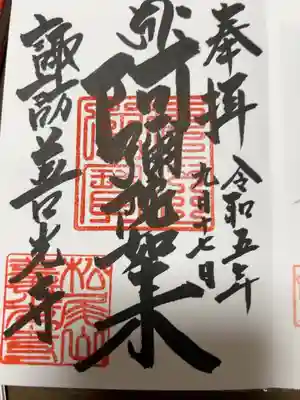 奉拝
令和五年
九月十七日
阿彌陀如来
諏訪善光寺
松尾山
善光寺